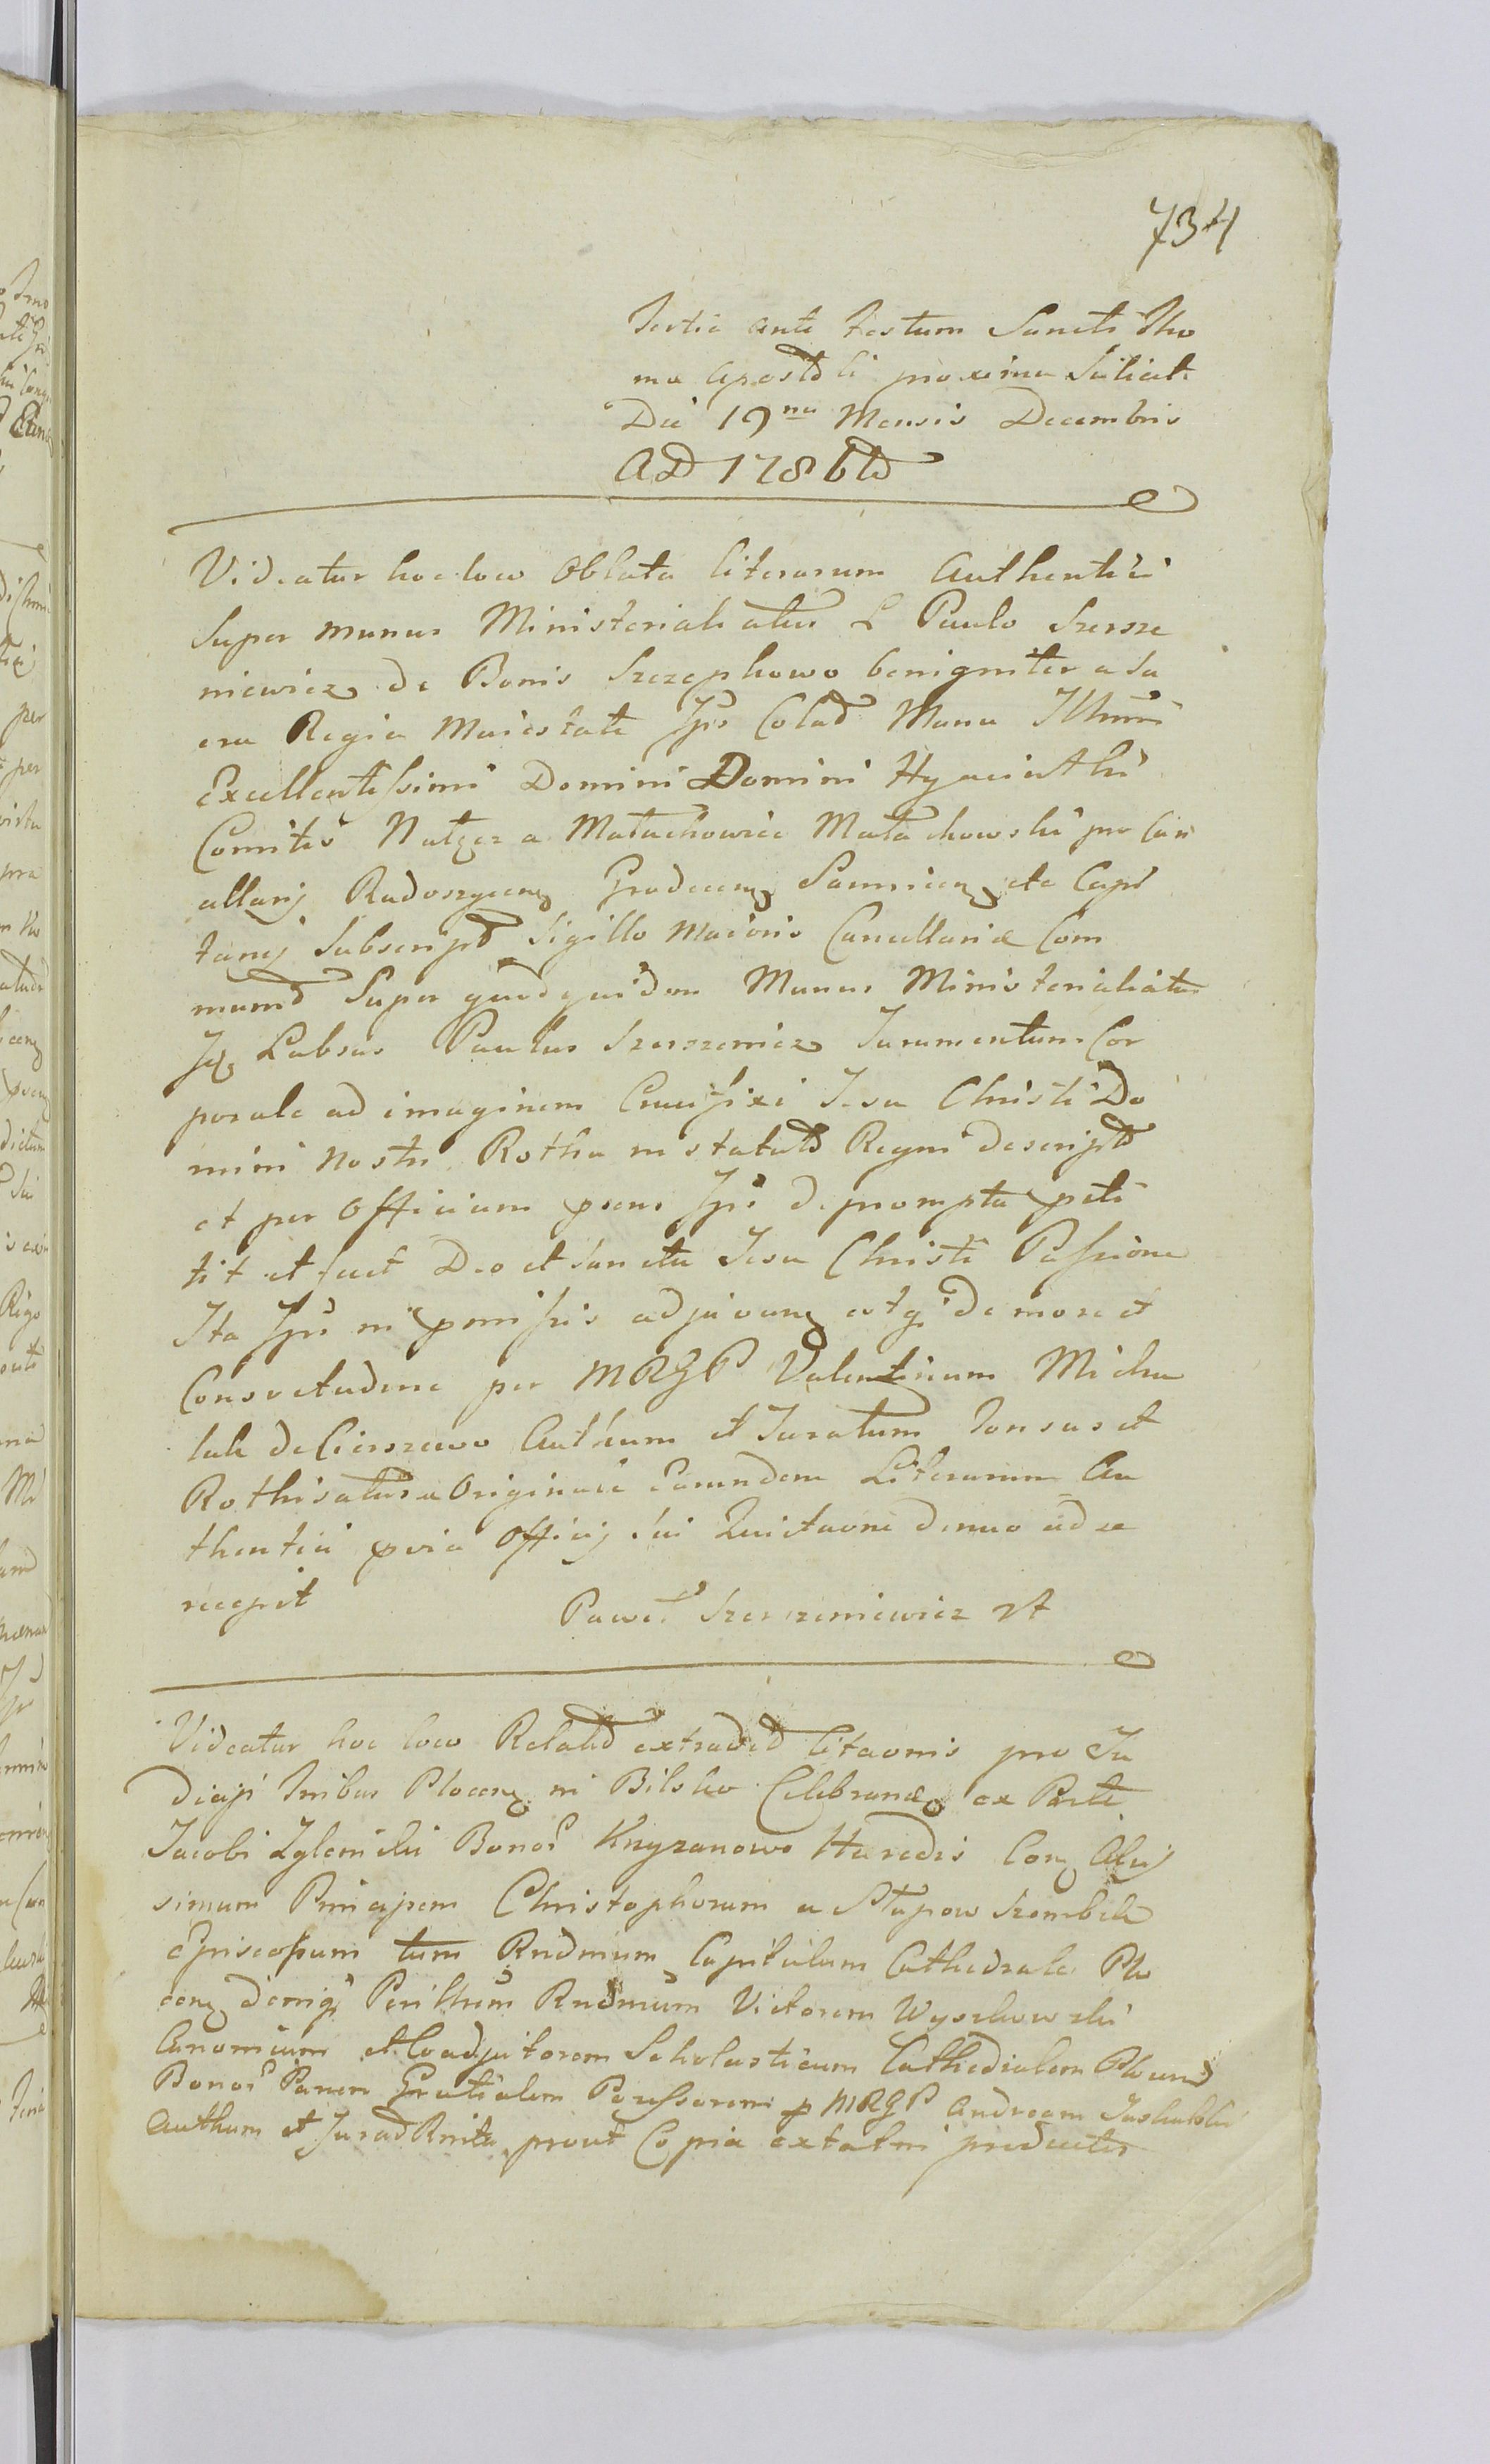 734
Feria ante Festum Sancti Tho
mæ Apostoli proxima Scilicet
Die 19na Mensis Decembris
AD 1786to
Videatur hoc loco Oblata literarum Authentici
Super munus Ministerialatus L Paulo Szersze
niewicz de Bonis Szczephowo benigniter a Sa
cra Regia Maiestate Ipsi Collat Manu Illmi
Excellentissimi Domini Domini Hyacinthi
Comitis Nałęcz a Małachowice Małachowski pro Can
cellarij Radoszycen Grodecen Samnicen etc Capi
tanej Subscript Sigillo Maioris Cancellariæ Com
munit Super quodquidem Munus Ministerialiatus
Iq Labsus Paulus Szerszeniewicz Juramentum Cor
porale ad imaginem Crucifixi Jesu Christi Do
mini Nostri Rotha in statutis Regni descripta
et per Officium psens Ipsi deprompta psti
tit et fuit Deo et sancta Jesu Christi Passione
Ita Ipsi in pmissis adjuvan estq de more et
Consvetudine per MRGP Valentinum Micha
lak de Cierszewo Authum et Juratum Tonsus et
Rothisatus a Originali Earundem Literarum Au
thentici pvia Officij sui Quietaone denuo ad se
recepit
Paweł Szerszeniewicz
Videatur hoc loco Relatio extradit Citaonis pro Ju
dicijs Tribus Plocen in Bilsko Celebrand ex Parte
Jacobi Zglenicki Bonor Knyzanowo Hæredis Con Cels
simum Principem Christophorum a Słupow Szembek
Episcopum tum Rndmum Capitulum Cathedrale Plo
cen deniq Perillrem Rndmum Victorem Wyszkowski
Canonicum et Coadjutorem Scholasticum Cathedralem Plocen
Bonor Panem Gratialem Possessorem p MRGP Andream Jaskulski
Authum et Jurat Rnita prout Copia extat in productis